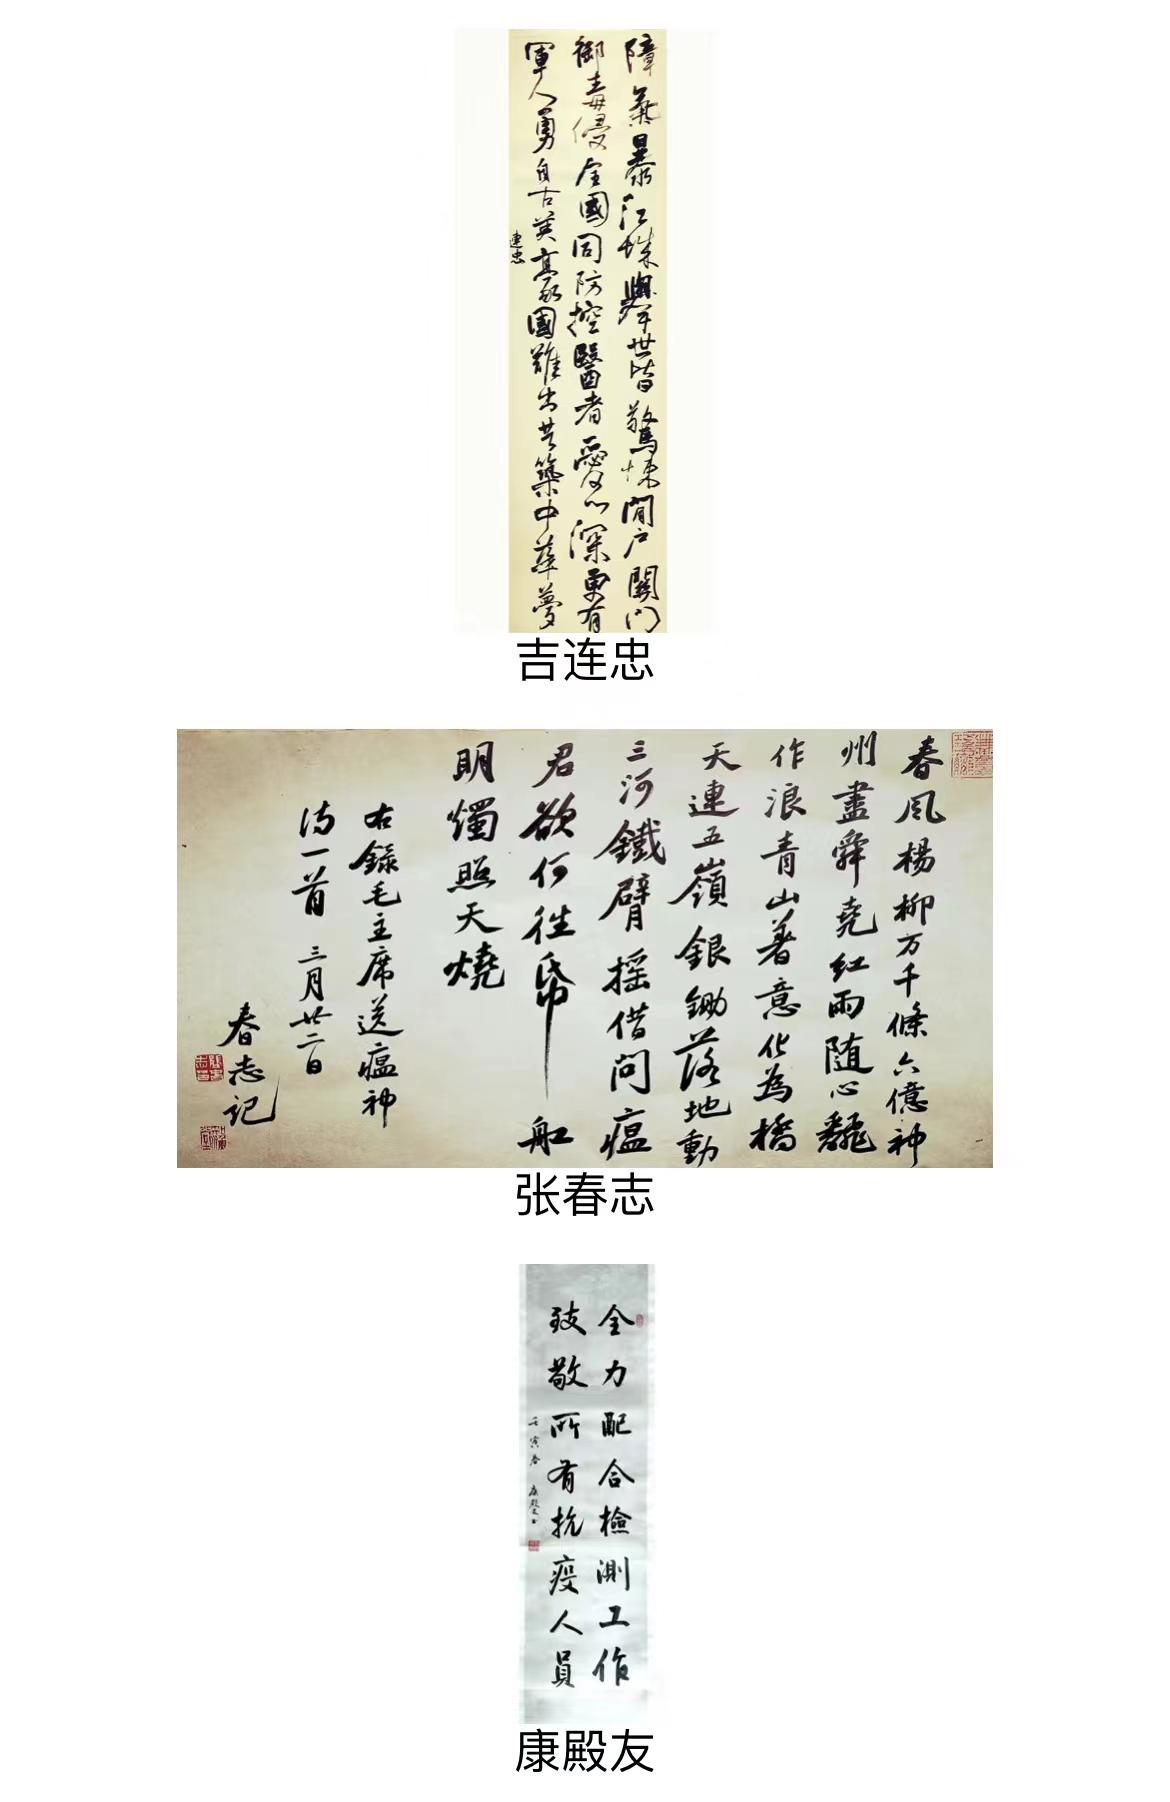 障氣暴江城舉世皆驚悚閉户關門
御毒侵全國同防控醫者愛心深更有
軍人勇自古英豪報國難出共築中華夢
連忠
吉连忠
春風楊柳万千條六億神
州盡舜堯紅雨随心翻
作浪青山著意化為橋
天連五嶺銀鋤落地動
三河鐵臂摇借問瘟
君欲何往帋船
明燭照天燒
右錄毛主席送瘟神
詩一首 三月廿二日
春志記
张春志
全力配合檢測工作
致敬所有抗疫人員
壬寅春 康殿友書
康殿友